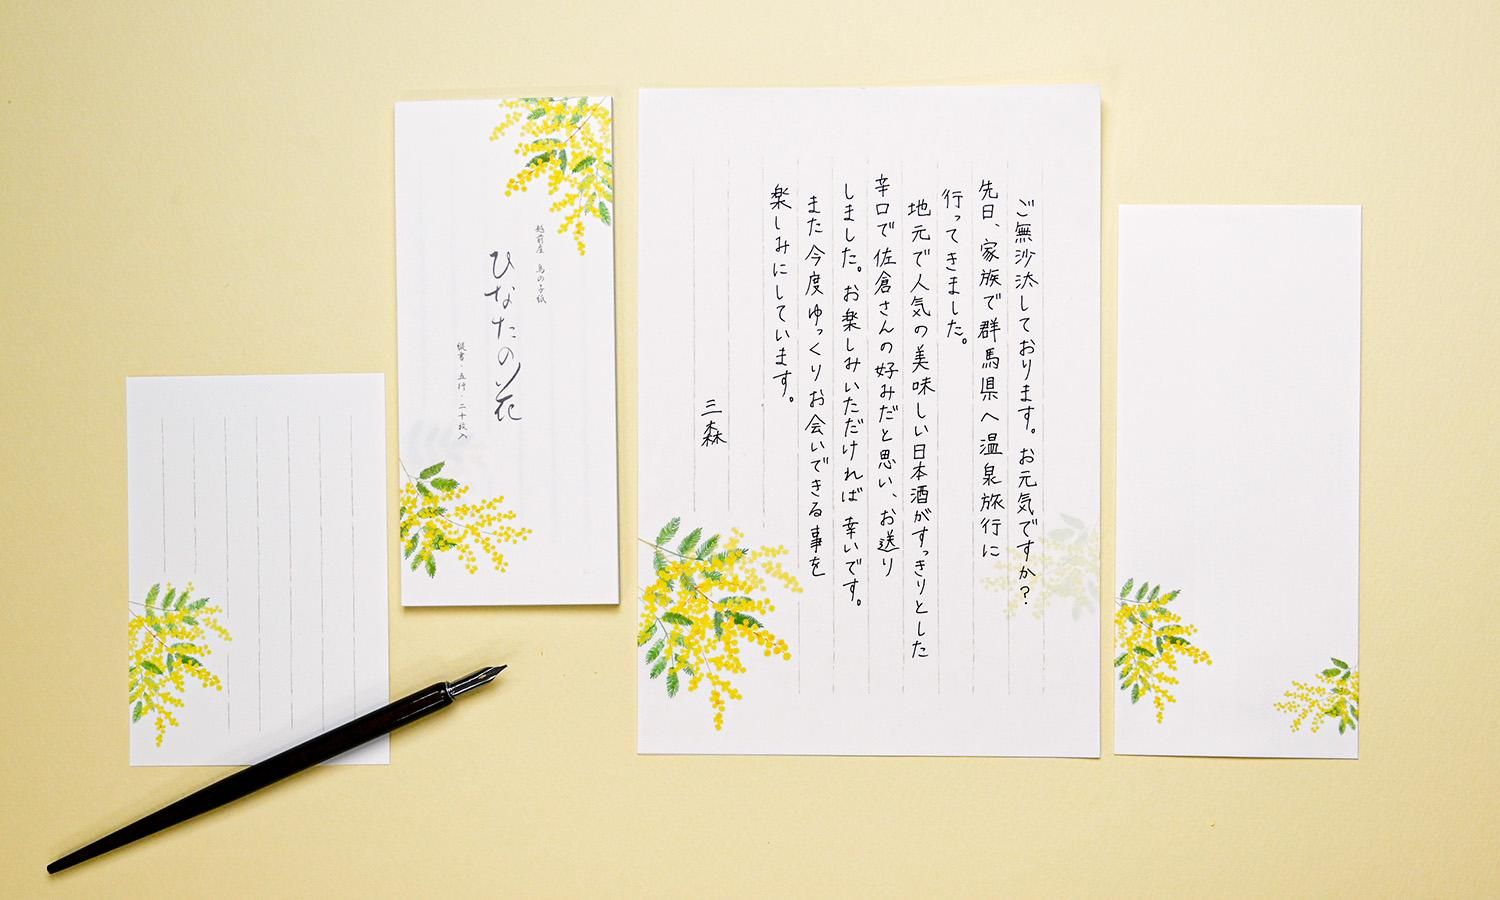 越前産 鳥の子紙
ひなたの花
縦書・五行・二十枚入
ご無沙汰しております。お元気ですか?
先日、家族で群馬県へ温泉旅行に
行ってきました。
地元で人気の美味しい日本酒がすっきりとした
辛口で佐倉さんの好みだと思い、お送り
しました。お楽しみいただければ幸いです。
また今度ゆっくりお会いできる事を
楽しみにしています。
三森